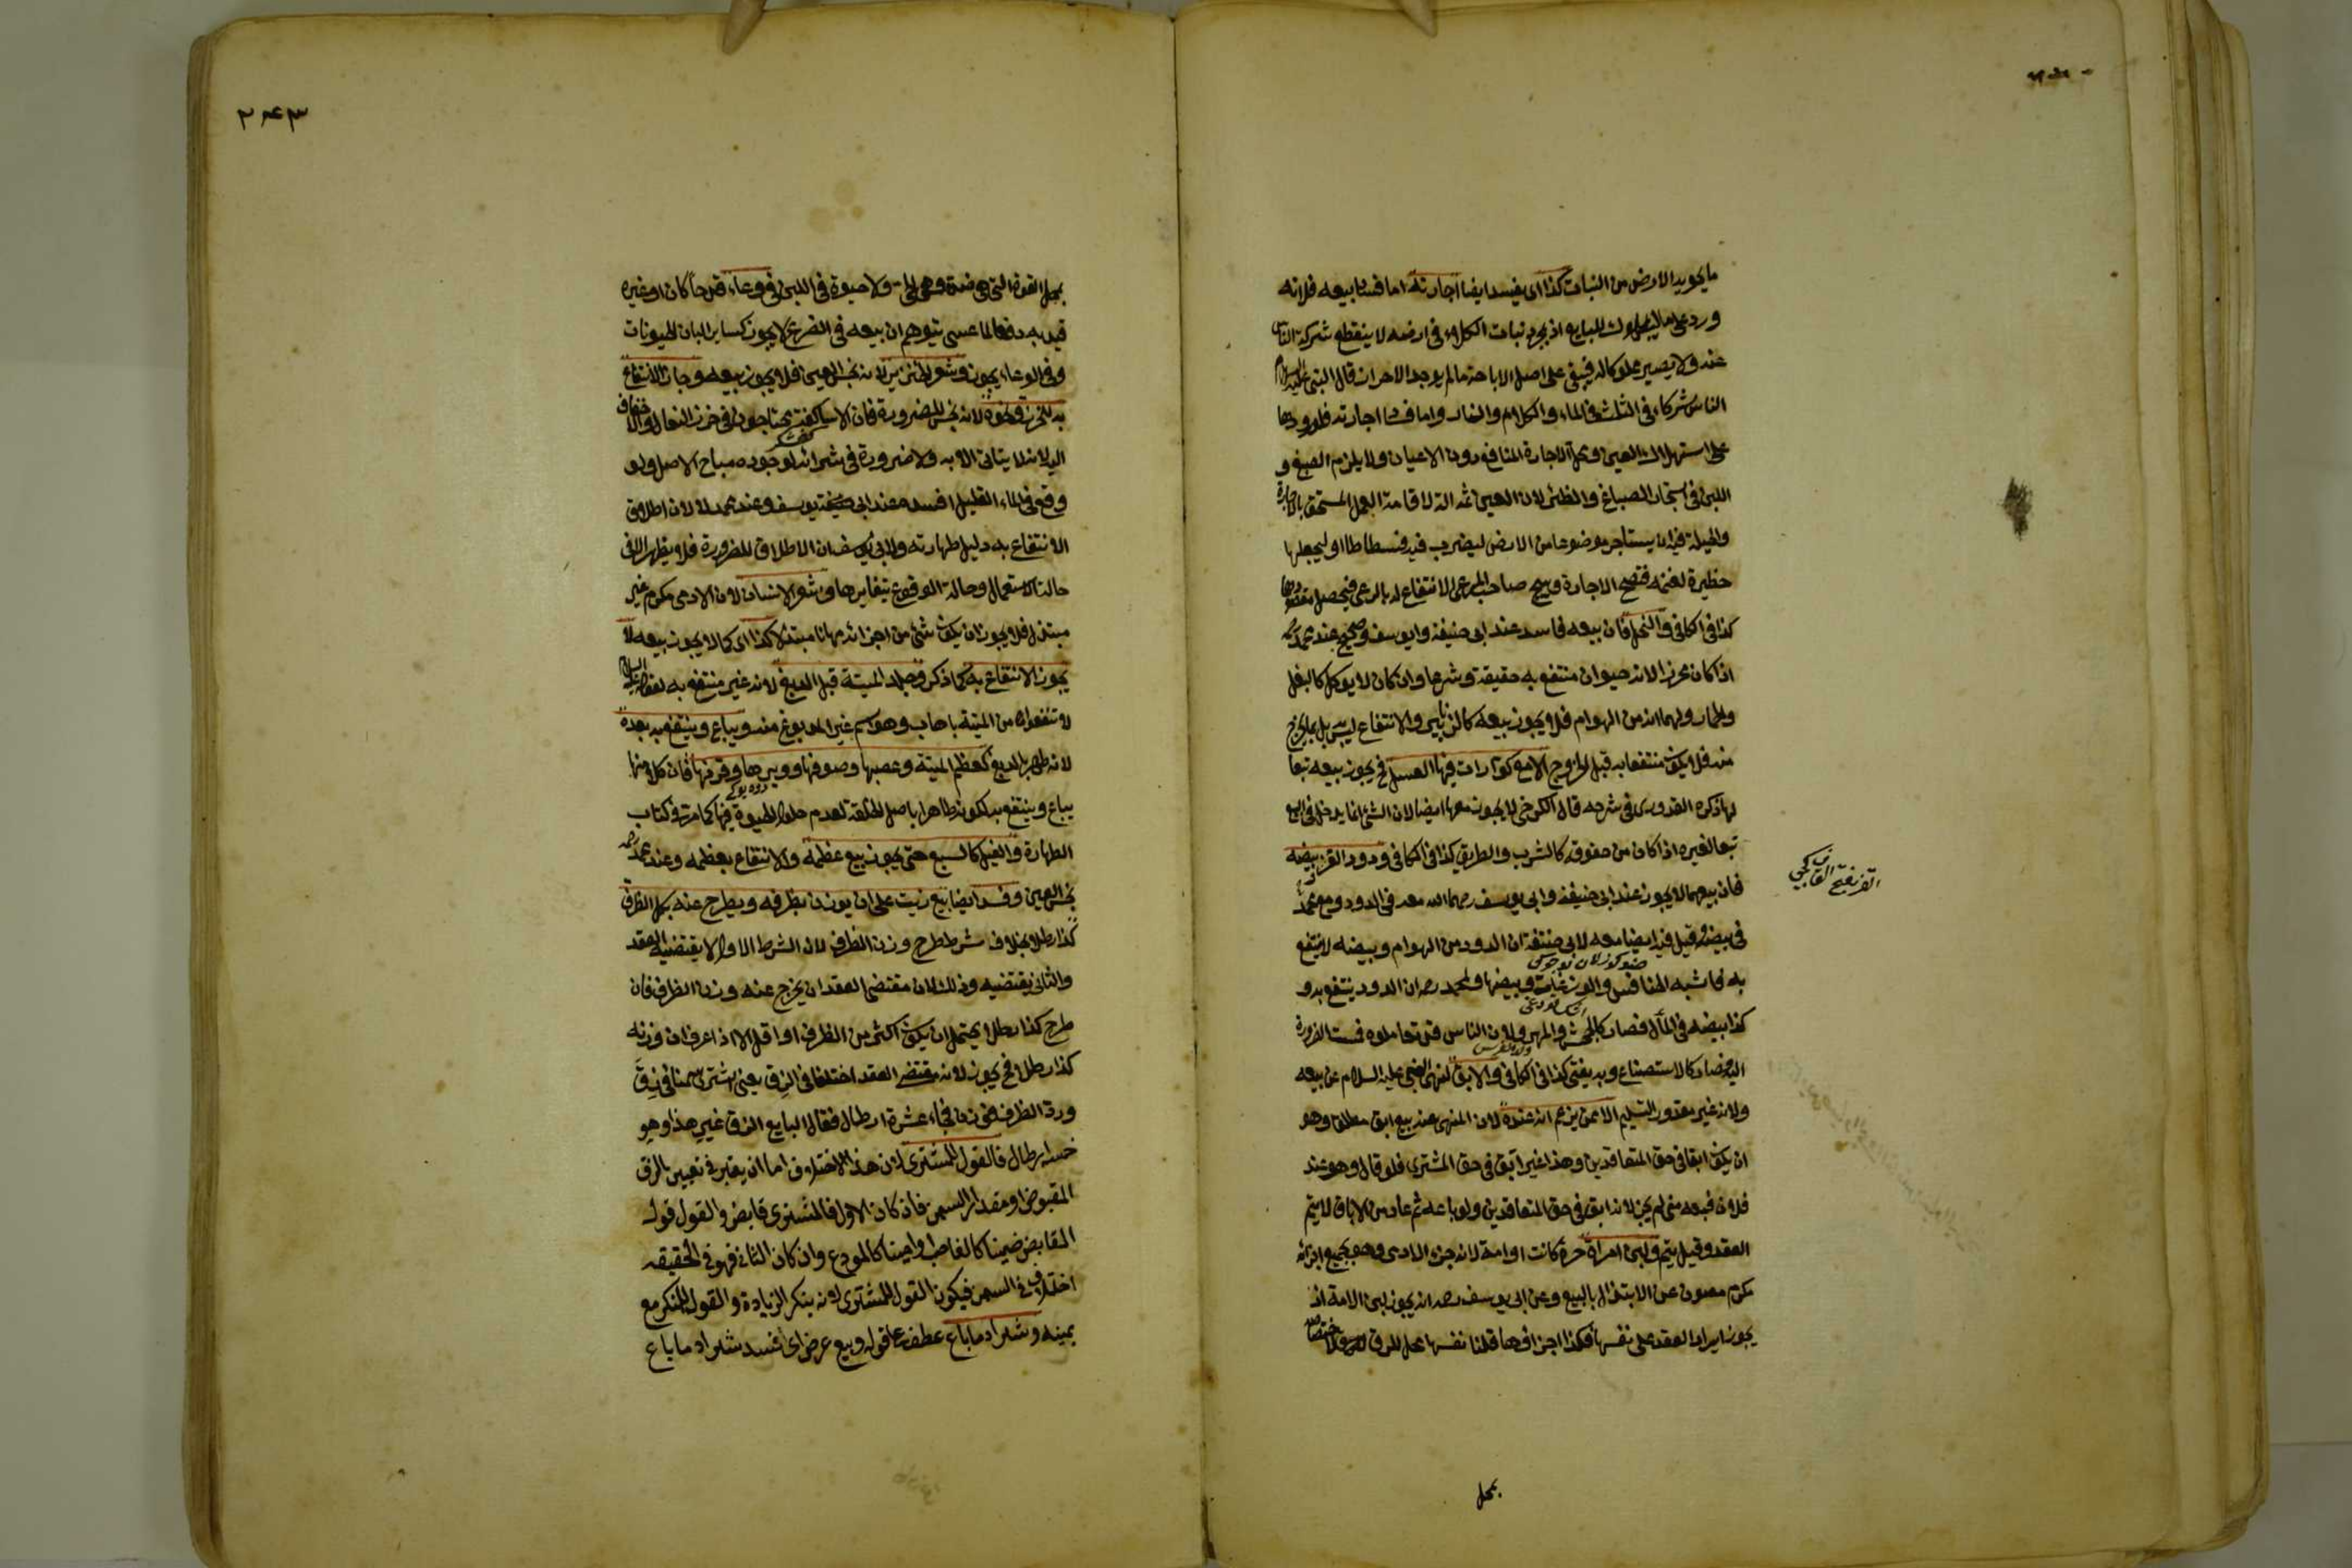 ما يحويه الارض من النبات كذا اى يفسد ايضا اجارته اما فساد بيعه فلانه
ورد على ما لا يملك البايع اذ بمجرد نبات الكلاء فى ارضه لا ينقطع شركة الناس
عنه ولا يصير مملوكا له فيبقى على اصل الاباحة ما لم يوجد الاحراز قال النبى عليه السلام
الناس شركاء فى الثلث فى الماء والكلاء والنار واما فساد اجارته فلورودها
على استهلاك العين ومحل الاجارة المنافع دون الاعيان ولا يلزم الصبغ و
اللبن فى استيجار الصباغ والظئر لان العين ثمه الة لاقامة العمل المستحق بالاجارة
والحيلة فيه ان يستاجر موضوعا من الارض ليضرب فيه فسطاطا او ليجعلها
حظيرة لغنمه فتصح الاجارة ويبيح صاحب المرعى الانتفاع له بالرعى فيحصل مقصودهما
كذا فى الكافى والنحل فان بيعه فاسد عند ابى حنيفة وابو يوسف وصحيح عند محمد
اذا كان محرزا لانه حيوان منتفع به حقيقة وشرعا وان كان لا يوكل كالبغل
والحمار ولهما انه من الهوام فلا يجوز بيعه كالزنابير والانتفاع ليس بل بما يخرج
منه فلا يكون منتفعا به قبل الخروج الا مع كوارات فيها العسل فح يجوز بيعه تبعا
لها ذكره القدورى فى شرحه قال الكرخى لا يجوز معها ايضا لان الشئ انما يدخل فى البيع
تبعا لغيره اذا كان من حقوقه كالشرب والطريق كذا فى الكافى ودود القز وبيضه
القز بفتح القاف
فان بيعهما لا يجوز عند ابى حنيفة وابى يوسف رحمه الله معه فى الدود ومع محمد
فى بيضه وقيل فيه ايضا معه لابى حنيفة ان الدود من الهوام وبيضه لا ينتفع
به فاشبه الخنافس والوزغات وبيضها ولمحمد رحمه ان الدود ينتفع به و
كذا بيضه فى المآل فصار كالجحش والمهر ولان الناس قد تعاملوه فمست الضرورة
اليه فصار كالاستصناع وبه يفتى كذا فى الكافى والابق لنهى النبى عليه السلام عن بيعه
ولانه غير مقدور التسليم الا ممن يزعم انه عنده لان المنهى عنه بيع ابق مطلق وهو
ان يكون ابقا فى حق المتعاقدين وهذا غير ابق فى حق المشترى فلو قال هو عند
فلان فبعه منى لم يجز لانه ابق فى حق المتعاقدين ولو باعه ثم عاد من الاباق لا يتم
العقد وقيل يتم ولبن امراة حرة كانت او امة لانه جزء الادمى وهو بجميع اجزائه
مكرم مصون عن الابتذال بالبيع وعن ابى يوسف رحمه انه يجوز لبن الامة اذ
يجوز ايراد العقد على نفسها فكذا اجزاؤها قلنا نفسها محل للرق لاختصاصه
بمحل
٢٤٣
بمحل القوة التى هى ضده وهى الحى ولا حيوة فى اللبن فى وعاء قدحا كان او غيره
قيد به دفعا لما عسى يتوهم ان بيعه فى الضرع لا يجوز كساير البان الحيونات
وفى الوعاء يجوز وشعر الخنزير لانه نجس العين فلا يجوز بيعه وجاز الانتفاع
به للخرز ونحوه لانه نجس للضرورة فان الاساكفة يحتاجون فى خرز النعال والاخفاف
اليه لانه لا يتاتى الا به ولا ضرورة فى شرائه لوجوده مباح الاصل ولو
وقع فى الماء القليل افسده عند ابى يوسف وعند محمد لا لان اطلاق
الانتفاع به دليل طهارته ولابى يوسف ان الاطلاق للضرورة فلا يظهر الا فى
حالة الاستعمال وحالة الوقوع تغايرها وشعر الانسان لان الادمى مكرم غير
مبتذل فلا يجوز ان يكون شئ من اجزائه مهانا مبتذلا كذا اى كما لا يجوز بيعه لا
يجوز الانتفاع به لما ذكر وجلد الميتة قبل الدبغ لانه غير منتفع به لقوله عليه السلام
لا تنتفعوا من الميتة باهاب وهو اسم غير المدبوغ منه ويباع وينتفع به بعده
لانه طهر بالدبغ كعظم الميتة وعصبها وصوفها ووبرها وقرنها فان كلا منها
يباع وينتفع به لكونه طاهرا باصل الخلقة لعدم حلول الحيوة فيها كما مر فى كتاب
الطهارة والفيل كالسبع حتى يجوز بيع عظمه والانتفاع بعظمه وعند محمد
نجس العين وفسد ايضا بيع زيت على ان يوزن بظرفه ويطرح عنه بكل الظرف
كذا رطلا بخلاف شرط طرح وزن الظرف لان الشرط الاول لا يقتضيه العقد
والثانى يقتضيه وذلك لان مقتضى العقد ان يخرج عنه وزن الظرف فان
طرح كذا رطلا يحتمل ان يكون اكثر من الظرف او اقل الا اذا عرف ان وزنه
كذا رطل فح يجوز لانه مقتضى العقد اختلفا فى الزق يعنى اشترى سمنا فى زق
ورد الظرف فوزن فجاء عشرة ارطال فقال البايع الزق غير هذا وهو
خمسة ارطال فالقول للمشترى لان هذا الاختلاف اما ان يعتبر فى تعيين الزق
المقبوض او مقدار السمن فان كان الاول فالمشترى قابض والقول قول
القابض ضمينا كالغاصب او امينا كالمودع وان كان الثانى فهو فى الحقيقه
اختلاف فى السمن فيكون القول للمشترى لانه ينكر الزيادة والقول للمنكر مع
يمينه وشراء ما باع عطف على قوله وبيع عرض اى فسد شراء ما باع